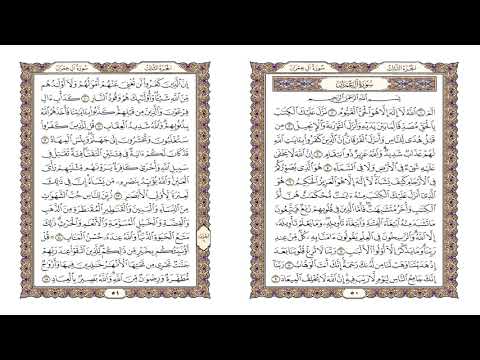 الجزء الثالث سورة آل عمران
سورة آل عمران
بسم الله الرحمن الرحيم
الٓمٓ ١ ٱللَّهُ لَآ إِلَٰهَ إِلَّا هُوَ ٱلْحَىُّ ٱلْقَيُّومُ ٢ نَزَّلَ عَلَيْكَ ٱلْكِتَٰبَ
بِٱلْحَقِّ مُصَدِّقًا لِّمَا بَيْنَ يَدَيْهِ وَأَنزَلَ ٱلتَّوْرَىٰةَ وَٱلْإِنجِيلَ ٣
مِن قَبْلُ هُدًى لِّلنَّاسِ وَأَنزَلَ ٱلْفُرْقَانَ إِنَّ ٱلَّذِينَ كَفَرُوا۟ بِـَٔايَٰتِ ٱللَّهِ
لَهُمْ عَذَابٌ شَدِيدٌ وَٱللَّهُ عَزِيزٌ ذُو ٱنتِقَامٍ ٤ إِنَّ ٱللَّهَ لَا يَخْفَىٰ
عَلَيْهِ شَىْءٌ فِى ٱلْأَرْضِ وَلَا فِى ٱلسَّمَآءِ ٥ هُوَ ٱلَّذِى يُصَوِّرُكُمْ
فِى ٱلْأَرْحَامِ كَيْفَ يَشَآءُ لَآ إِلَٰهَ إِلَّا هُوَ ٱلْعَزِيزُ ٱلْحَكِيمُ ٦ هُوَ
ٱلَّذِىٓ أَنزَلَ عَلَيْكَ ٱلْكِتَٰبَ مِنْهُ ءَايَٰتٌ مُّحْكَمَٰتٌ هُنَّ أُمُّ
ٱلْكِتَٰبِ وَأُخَرُ مُتَشَٰبِهَٰتٌ فَأَمَّا ٱلَّذِينَ فِى قُلُوبِهِمْ زَيْغٌ فَيَتَّبِعُونَ
مَا تَشَٰبَهَ مِنْهُ ٱبْتِغَآءَ ٱلْفِتْنَةِ وَٱبْتِغَآءَ تَأْوِيلِهِۦ وَمَا يَعْلَمُ تَأْوِيلَهُۥٓ
إِلَّا ٱللَّهُ وَٱلرَّٰسِخُونَ فِى ٱلْعِلْمِ يَقُولُونَ ءَامَنَّا بِهِۦ كُلٌّ مِّنْ عِندِ
رَبِّنَا وَمَا يَذَّكَّرُ إِلَّآ أُو۟لُوا۟ ٱلْأَلْبَٰبِ ٧ رَبَّنَا لَا تُزِغْ قُلُوبَنَا بَعْدَ
إِذْ هَدَيْتَنَا وَهَبْ لَنَا مِن لَّدُنكَ رَحْمَةً إِنَّكَ أَنتَ ٱلْوَهَّابُ ٨ رَبَّنَآ
إِنَّكَ جَامِعُ ٱلنَّاسِ لِيَوْمٍ لَّا رَيْبَ فِيهِ إِنَّ ٱللَّهَ لَا يُخْلِفُ ٱلْمِيعَادَ ٩
٥٠
الجزء الثالث سورة آل عمران
إِنَّ ٱلَّذِينَ كَفَرُوا۟ لَن تُغْنِىَ عَنْهُمْ أَمْوَٰلُهُمْ وَلَآ أَوْلَٰدُهُم
مِّنَ ٱللَّهِ شَيْـًٔا وَأُو۟لَٰٓئِكَ هُمْ وَقُودُ ٱلنَّارِ ١٠ كَدَأْبِ ءَالِ
فِرْعَوْنَ وَٱلَّذِينَ مِن قَبْلِهِمْ كَذَّبُوا۟ بِـَٔايَٰتِنَا فَأَخَذَهُمُ ٱللَّهُ
بِذُنُوبِهِمْ وَٱللَّهُ شَدِيدُ ٱلْعِقَابِ ١١ قُل لِّلَّذِينَ كَفَرُوا۟
سَتُغْلَبُونَ وَتُحْشَرُونَ إِلَىٰ جَهَنَّمَ وَبِئْسَ ٱلْمِهَادُ ١٢
قَدْ كَانَ لَكُمْ ءَايَةٌ فِى فِئَتَيْنِ ٱلْتَقَتَا فِئَةٌ تُقَٰتِلُ فِى
سَبِيلِ ٱللَّهِ وَأُخْرَىٰ كَافِرَةٌ يَرَوْنَهُم مِّثْلَيْهِمْ رَأْىَ
ٱلْعَيْنِ وَٱللَّهُ يُؤَيِّدُ بِنَصْرِهِۦ مَن يَشَآءُ إِنَّ فِى ذَٰلِكَ
لَعِبْرَةً لِّأُو۟لِى ٱلْأَبْصَٰرِ ١٣ زُيِّنَ لِلنَّاسِ حُبُّ ٱلشَّهَوَٰتِ
مِنَ ٱلنِّسَآءِ وَٱلْبَنِينَ وَٱلْقَنَٰطِيرِ ٱلْمُقَنطَرَةِ مِنَ ٱلذَّهَبِ
وَٱلْفِضَّةِ وَٱلْخَيْلِ ٱلْمُسَوَّمَةِ وَٱلْأَنْعَٰمِ وَٱلْحَرْثِ ذَٰلِكَ
مَتَٰعُ ٱلْحَيَوٰةِ ٱلدُّنْيَا وَٱللَّهُ عِندَهُۥ حُسْنُ ٱلْمَـَٔابِ ١٤ قُلْ
أَؤُنَبِّئُكُم بِخَيْرٍ مِّن ذَٰلِكُمْ لِلَّذِينَ ٱتَّقَوْا۟ عِندَ رَبِّهِمْ
جَنَّٰتٌ تَجْرِى مِن تَحْتِهَا ٱلْأَنْهَٰرُ خَٰلِدِينَ فِيهَا وَأَزْوَٰجٌ
مُّطَهَّرَةٌ وَرِضْوَٰنٌ مِّنَ ٱللَّهِ وَٱللَّهُ بَصِيرٌۢ بِٱلْعِبَادِ ١٥
٥١